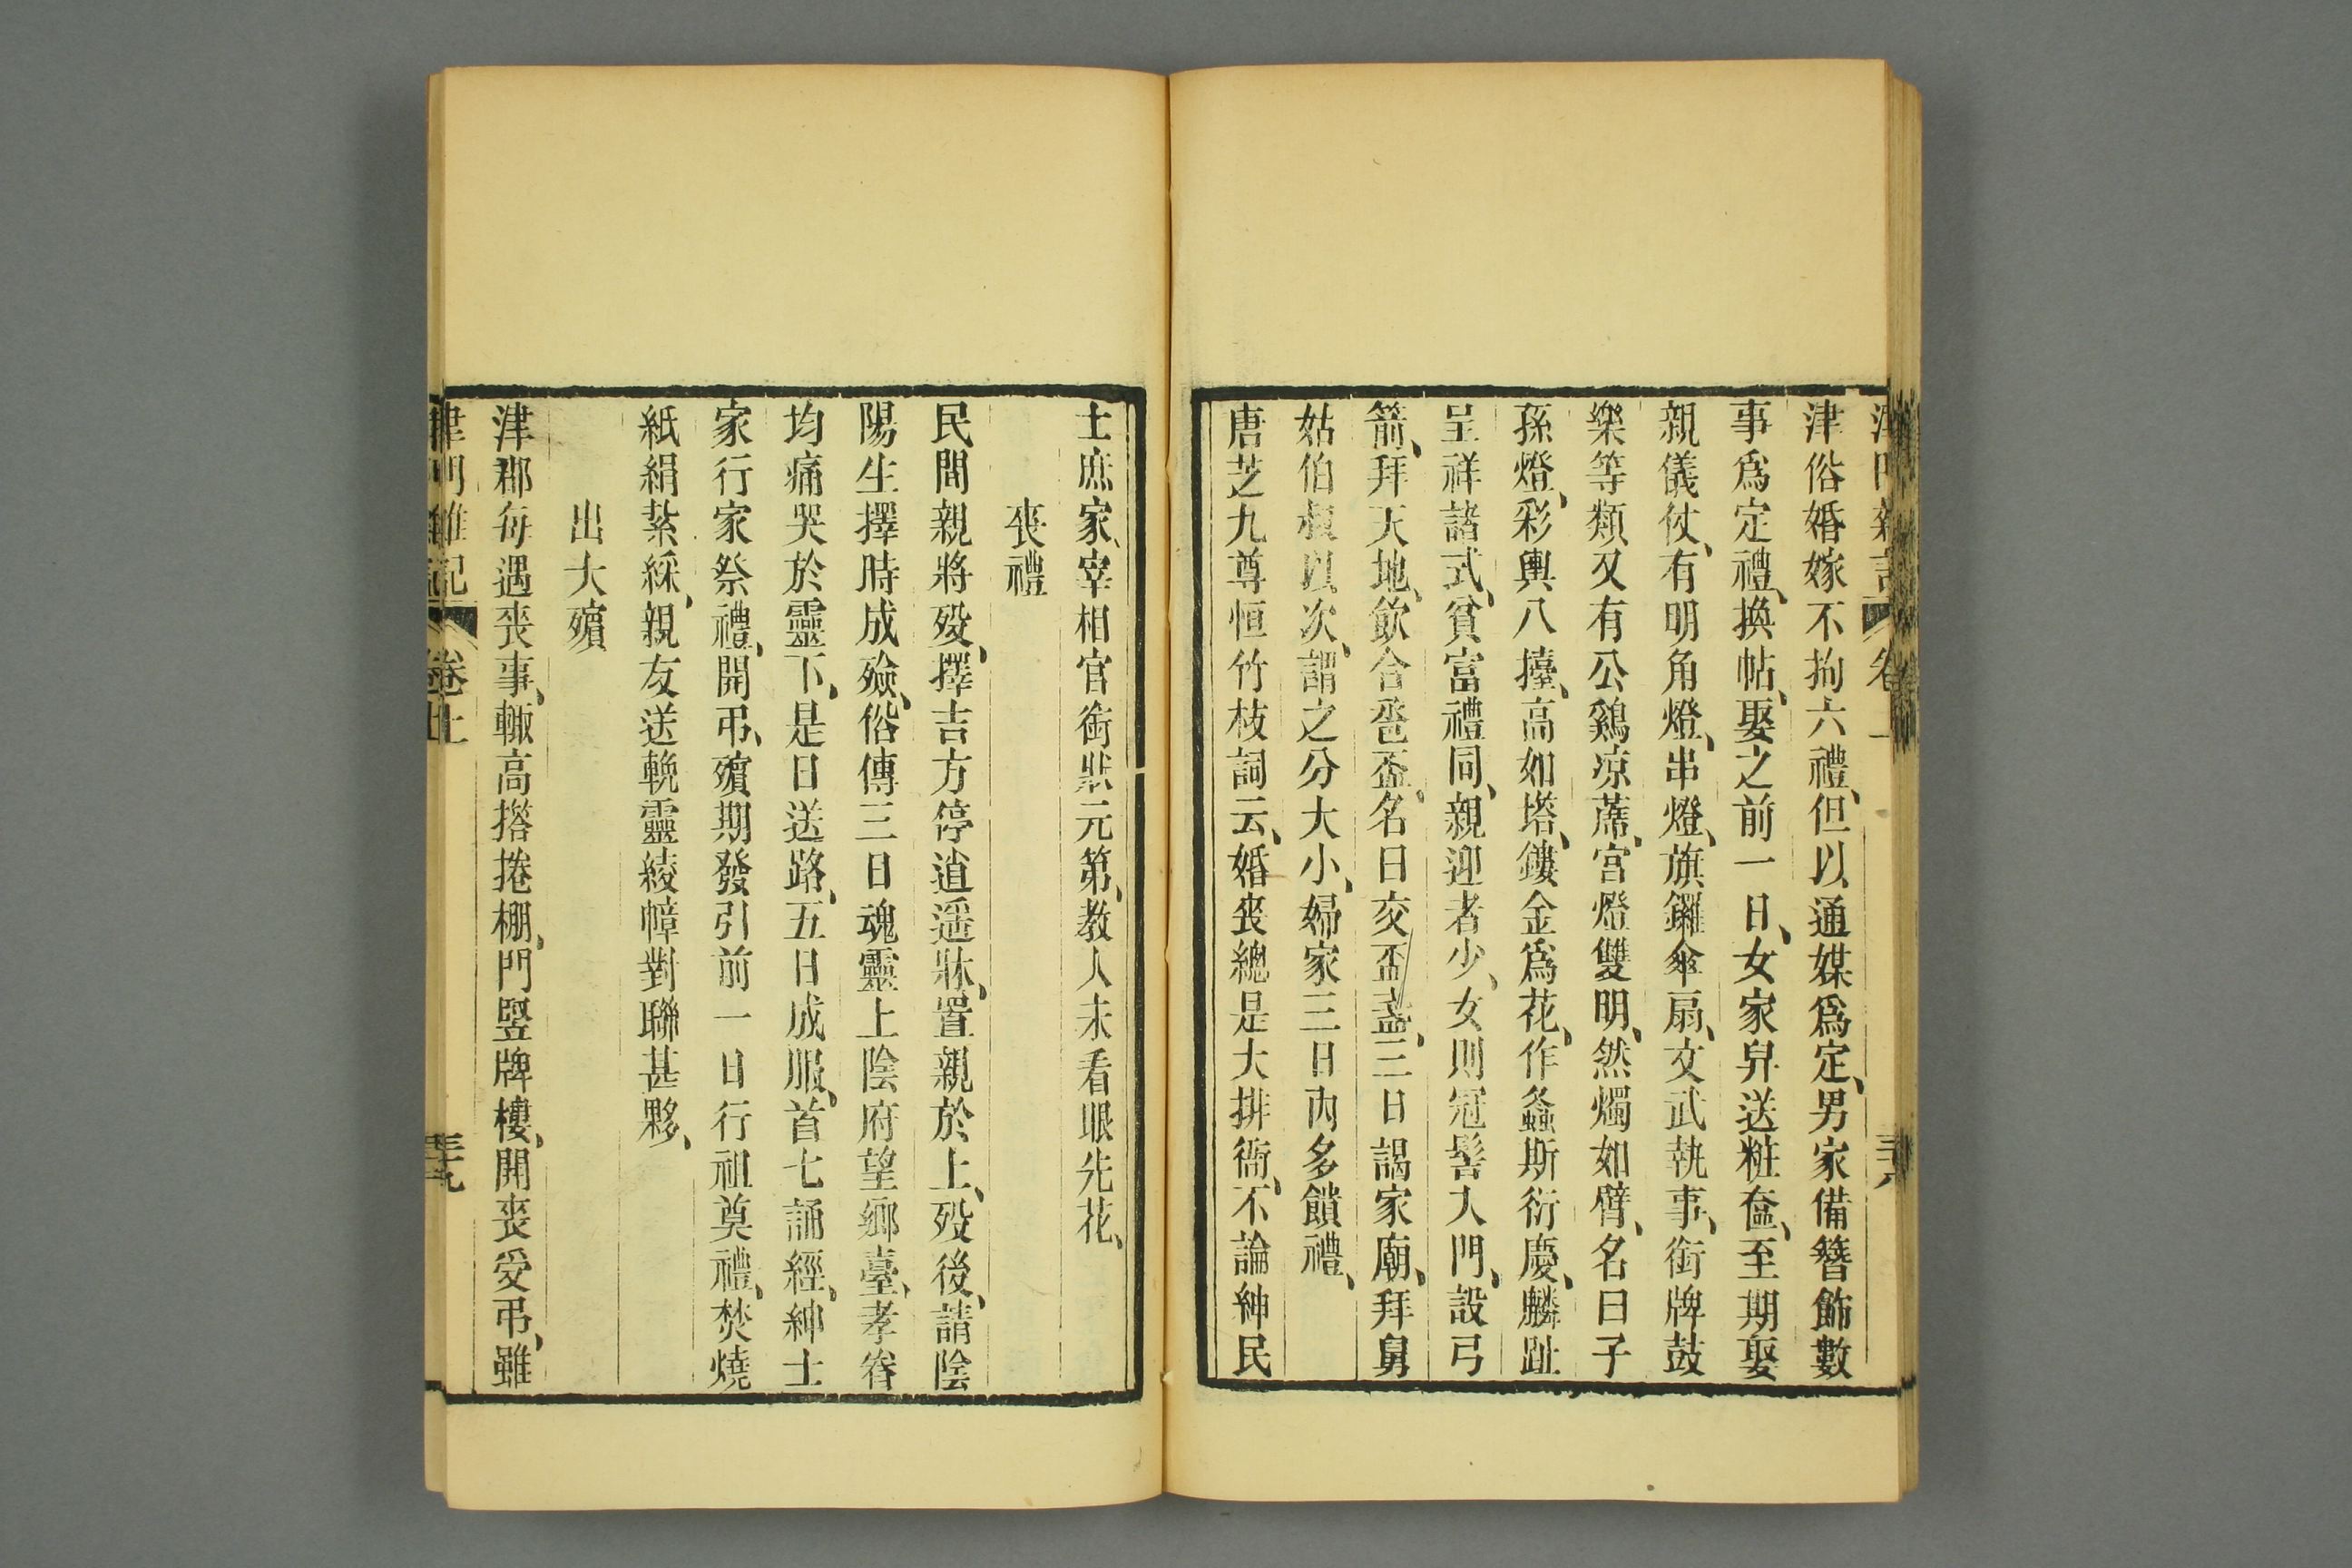 津俗婚嫁不拘六禮、但以通媒爲定、男家備簪飾數
事爲定禮、換帖、娶之前一日、女家舁送粧奩、至期娶
親儀仗、有明角燈、串燈、旗鑼傘扇、文武執事、銜牌鼓
樂等類又有公鷄凉蓆、宮燈雙明、然燭如臂、名曰子
孫燈、彩輿八擡、高如塔、鏤金爲花、作螽斯衍慶、麟趾
呈祥諸式、貧富禮同、親迎者少、女則冠髻大門、設弓
箭、拜天地、飲合卺盃、名曰交盃盞、三日謁家廟、拜舅
姑伯叔以次、謂之分大小、婦家三日內多饋禮、
唐芝九尊恒竹枝詞云、婚喪總是大排衙、不論紳民
士庶家、宰相官銜狀元第、教人未看眼先花、
喪禮
民間親將歿、擇吉方停逍遥牀、置親於上、歿後、請陰
陽生擇時成殮、俗傳三日魂靈上陰府望鄉臺、孝眷
均痛哭於靈下、是日送路、五日成服、首七誦經、紳士
家行家祭禮、開弔、殯期發引前一日行祖奠禮、焚燒
紙絹紮綵、親友送輓靈綾幛對聯甚夥、
出大殯
津郡每遇喪事、輙高搭捲棚、門竪牌樓、開喪受弔、雖
津門雜記
卷上
三十九